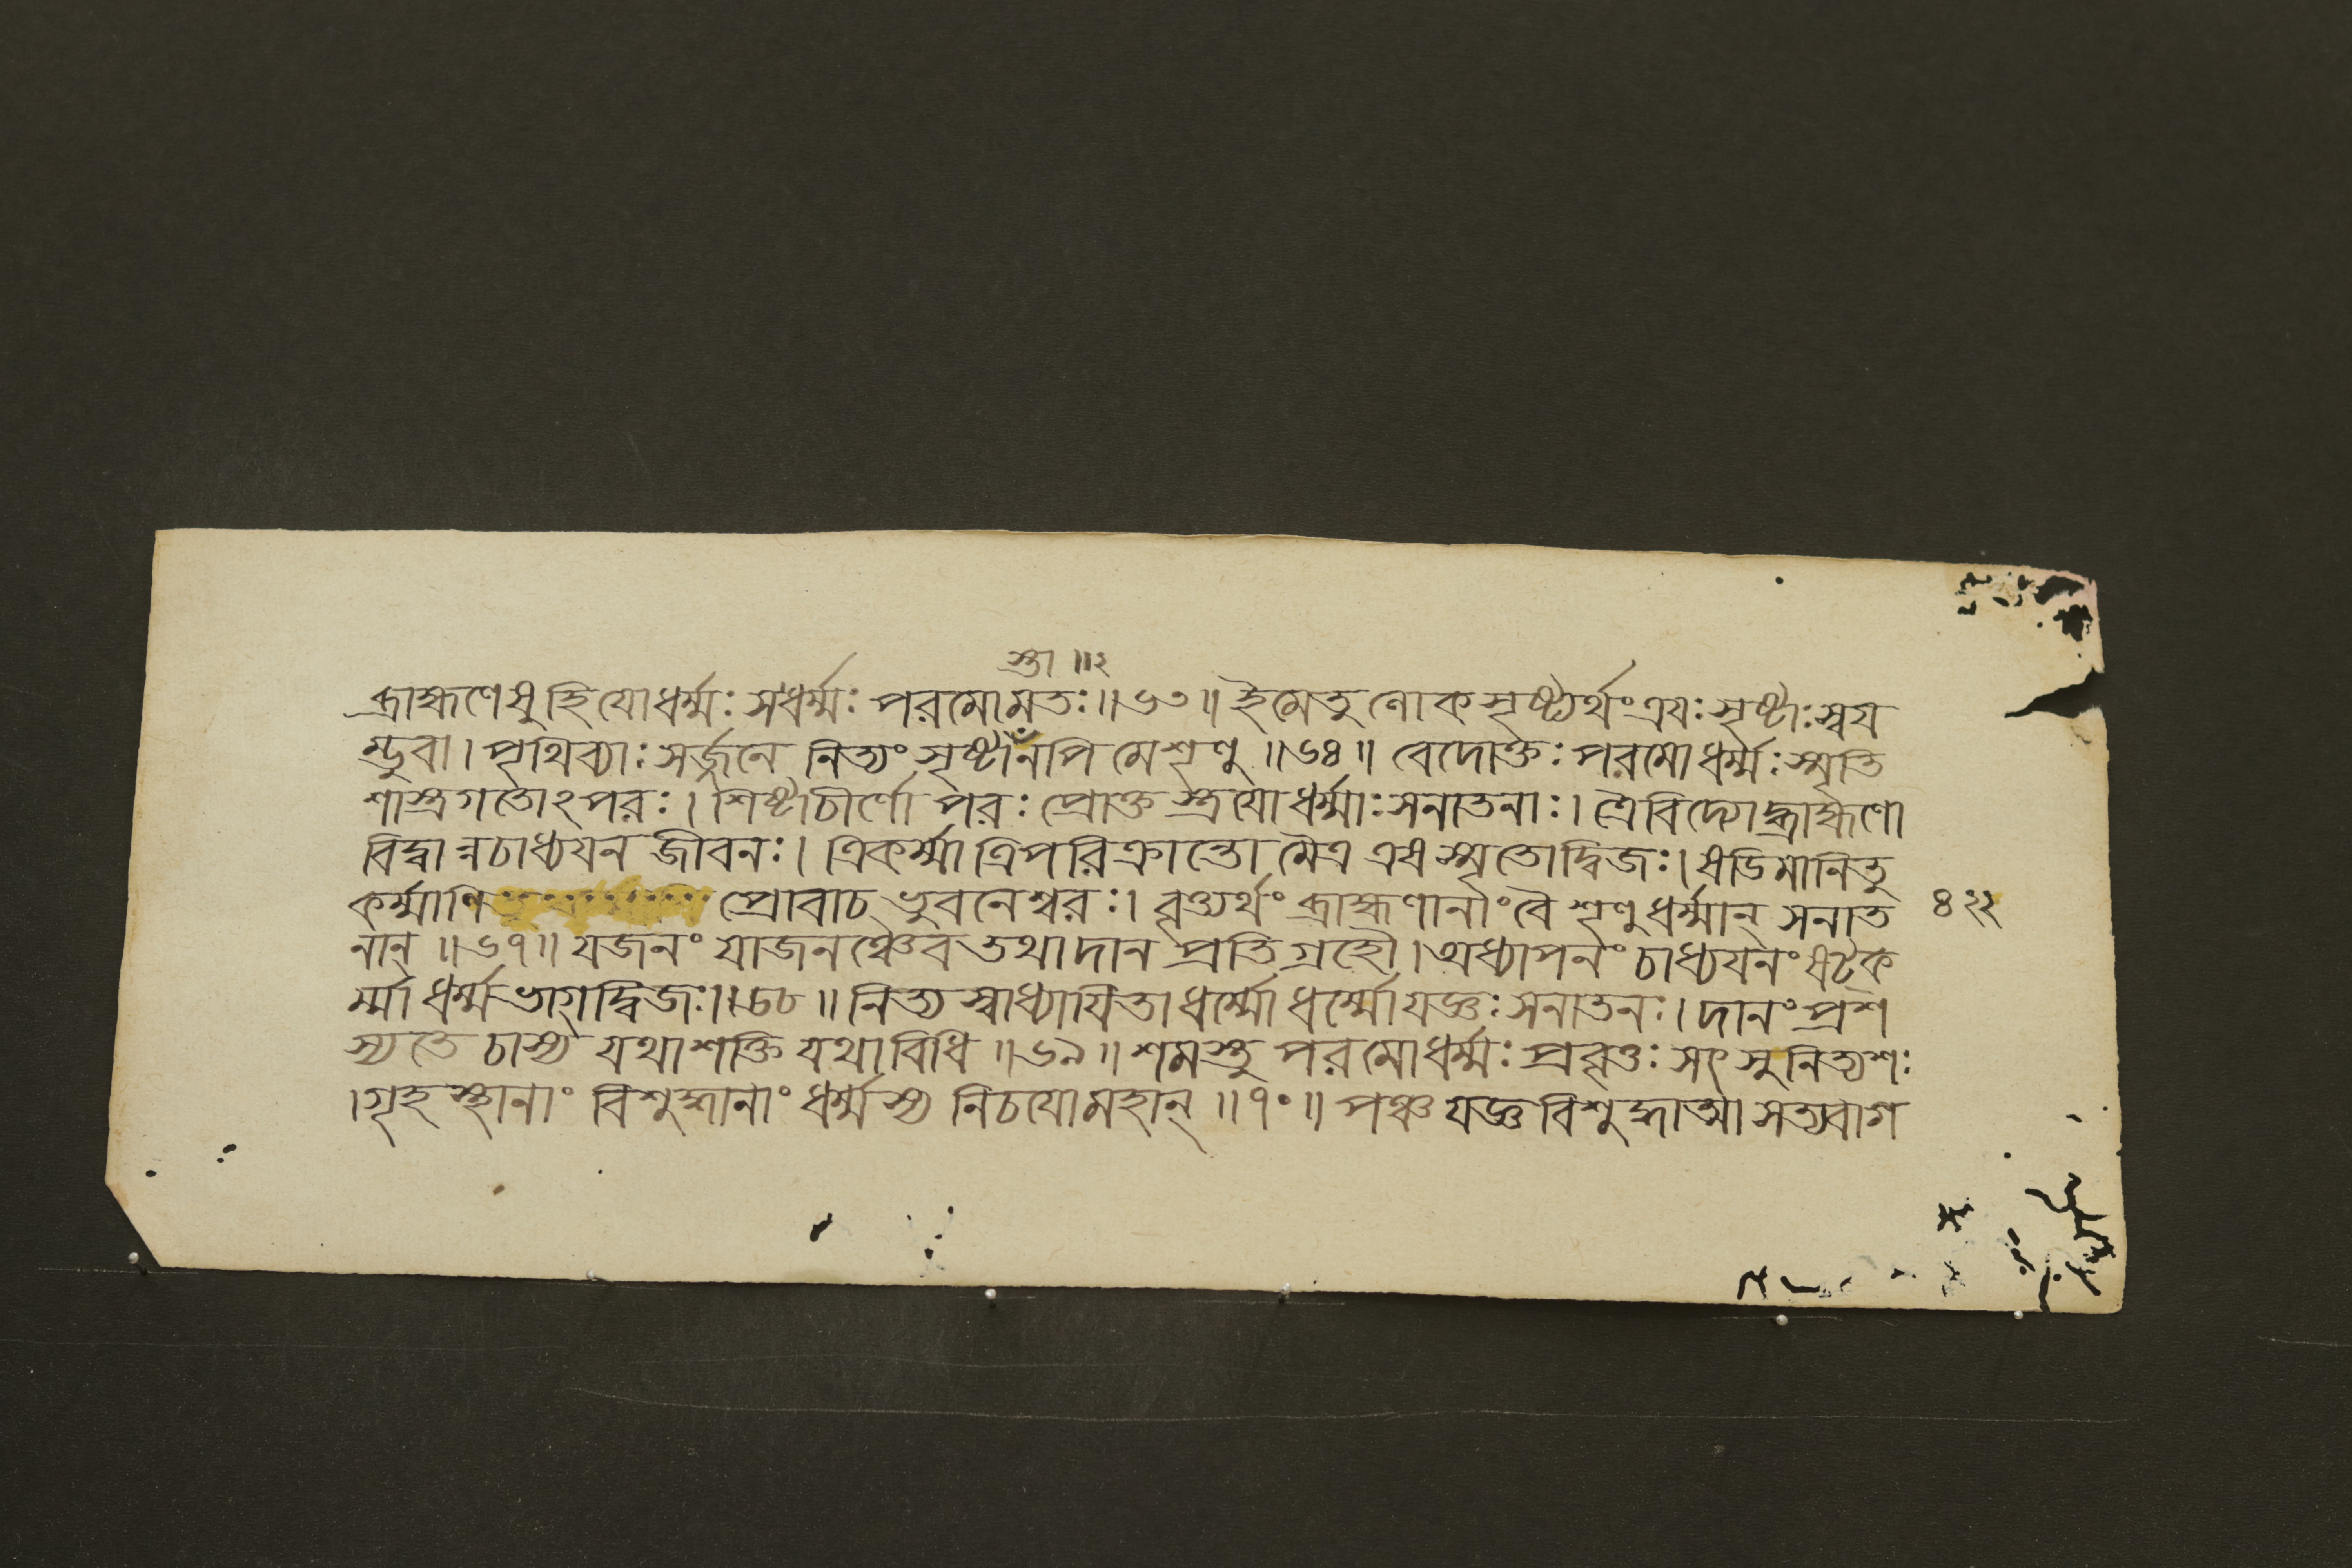 স্তা ॥২
ব্রাহ্মণেষু হি যো ধর্ম্মঃ স ধর্ম্মঃ পরমো মতঃ ॥৬৩॥ ইমে তু লোকসৃষ্ট্যর্থং ত্রযঃ সৃষ্টাঃ স্বয
ম্ভুবা । পৃথিব্যাঃ সর্জ্জনে নিত্যং সৃষ্টানপি মে শৃণু ॥৬৪॥ বেদোক্তঃ পরমো ধর্ম্মঃ স্মৃতি
শাস্ত্রগতোঽপরঃ । শিষ্টাচীর্ণো পরঃ প্রোক্ত স্ত্রযো ধর্ম্মাঃ সনাতনাঃ । ত্রৈবিদ্যো ব্রাহ্মণো
বিদ্বান্নচাধ্যযন জীবনঃ । ত্রিকর্ম্মা ত্রিপরিক্রান্তো মৈত্র এষ স্মৃতো দ্বিজঃ । ষডিমানি তু
কর্ম্মাণি প্রোবাচ ভুবনেশ্বরঃ । বৃত্ত্যর্থং ব্রাহ্মণানাং বৈ শৃণু ধর্ম্মান্ সনাত
৪২২
নান্ ॥৬৭॥ যজনং যাজনঞ্চৈব তথা দান প্রতিগ্রহৌ । অধ্যাপনং চাধ্যযনং ষট্ক
র্ম্মা ধর্ম্মভাগ্দ্বিজঃ ॥৬৮॥ নিত্য স্বাধ্যাযিতা ধর্ম্মো ধর্ম্মো যজ্ঞঃ সনাতনঃ । দানং প্রশ
স্যতে চাস্য যথাশক্তি যথাবিধি ॥৬৯॥ শমস্তু পরমো ধর্ম্মঃ প্রবৃত্তঃ সৎসু নিত্যশঃ
। গৃহস্থানাং বিশুদ্ধানাং ধর্ম্মস্য নিচযো মহান্ ॥৭০॥ পঞ্চ যজ্ঞ বিশুদ্ধাত্মা সত্যবাগ